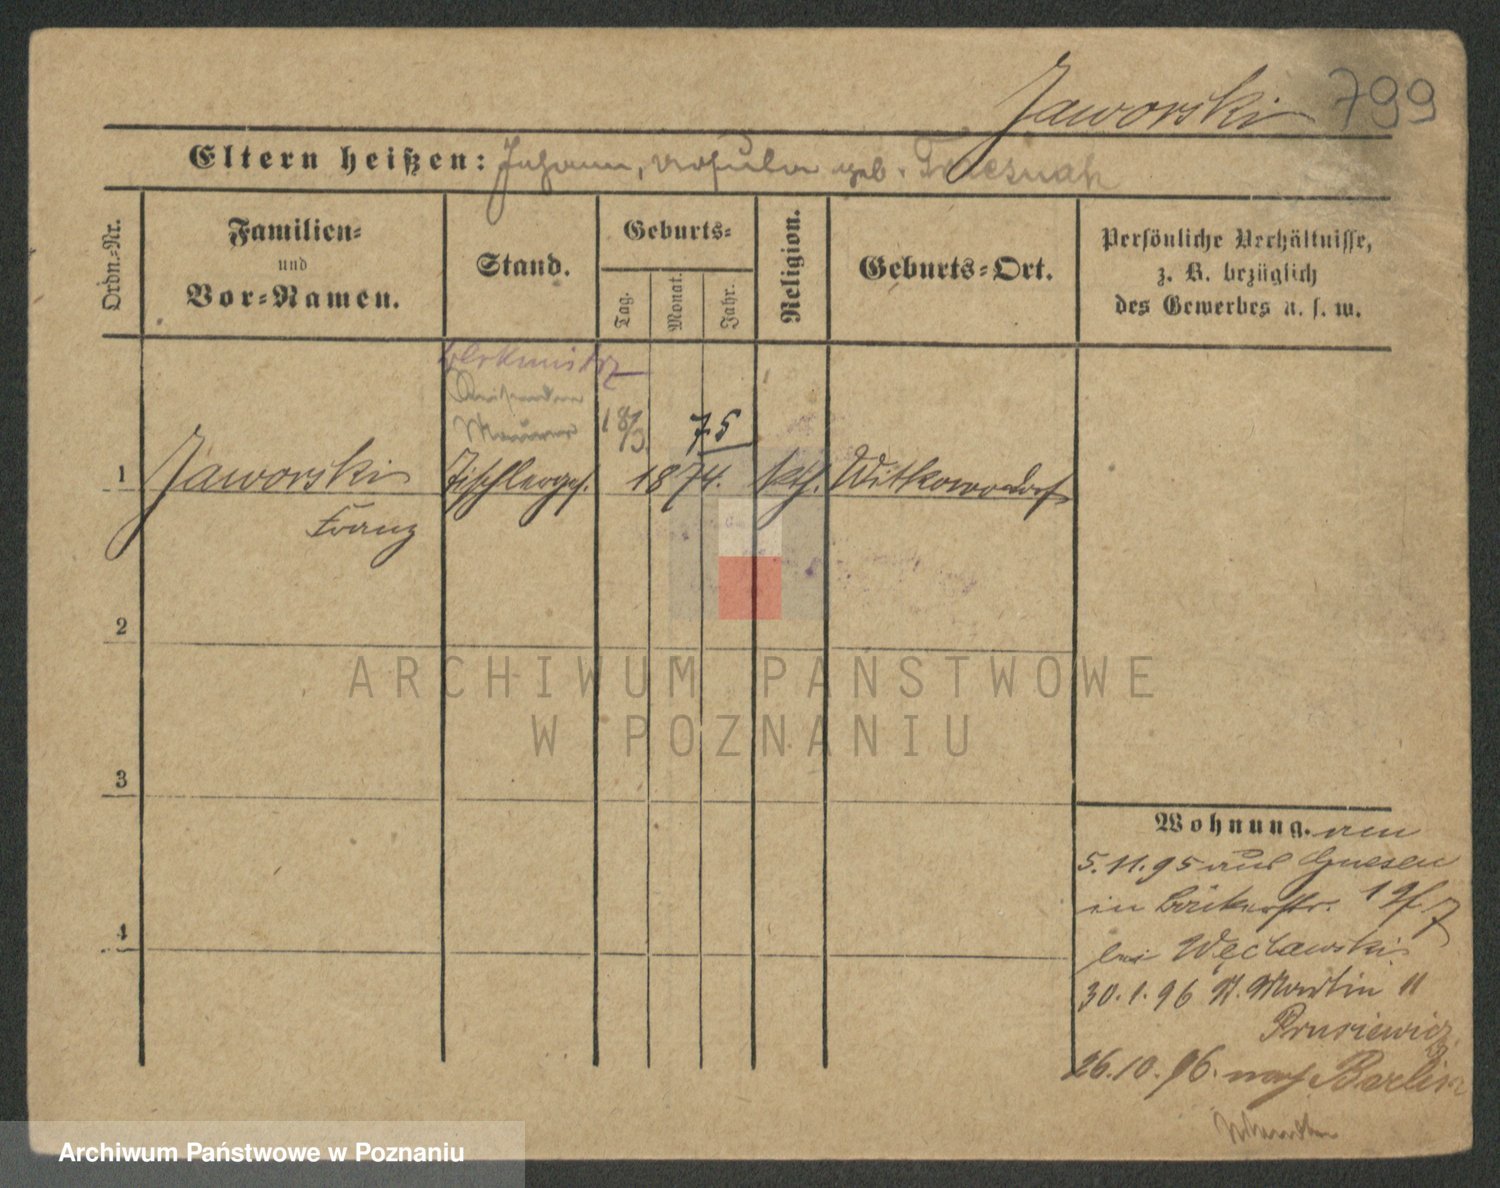 Jaworski 799
Eltern heißen: Johann, geb.
Ordn.-Nr.
Familien-
und
Vor-Namen.
Stand.
Geburts-
Tag.
Monat.
Jahr.
Religion.
Geburts-Ort.
Persönliche Verhältnisse,
z. B. bezüglich
des Gewerbes u. s. w.
Maurer
18/3. 75
1 Jaworski Tischlerges. 1874. kth. Witkowodorf
Franz
2
3
4
Wohnung. am
5.11.95 aus Gnesen
in Bäckerstr. 19/7
bei Węclawski
30.1.96 St. Martin 11
Prusiewicz
26.10.96. nach Berlin
ARCHIWUM PAŃSTWOWE
W POZNANIU
Archiwum Państwowe w Poznaniu